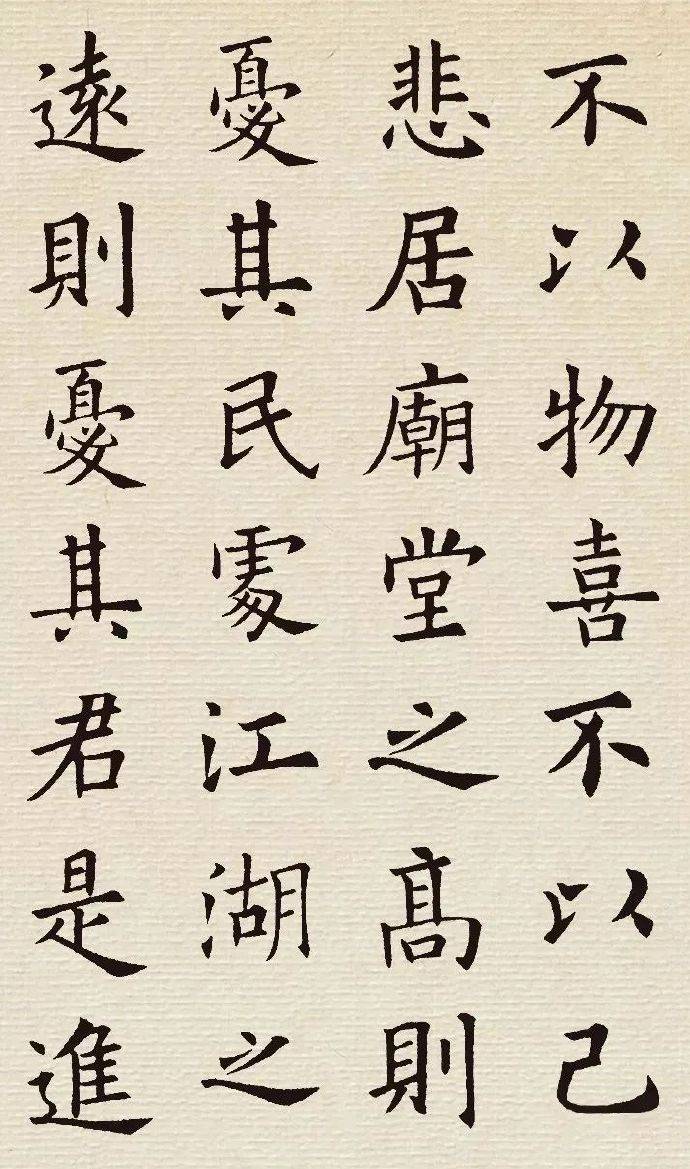 不以物喜不以己
悲居廟堂之高則
憂其民處江湖之
遠則憂其君是進